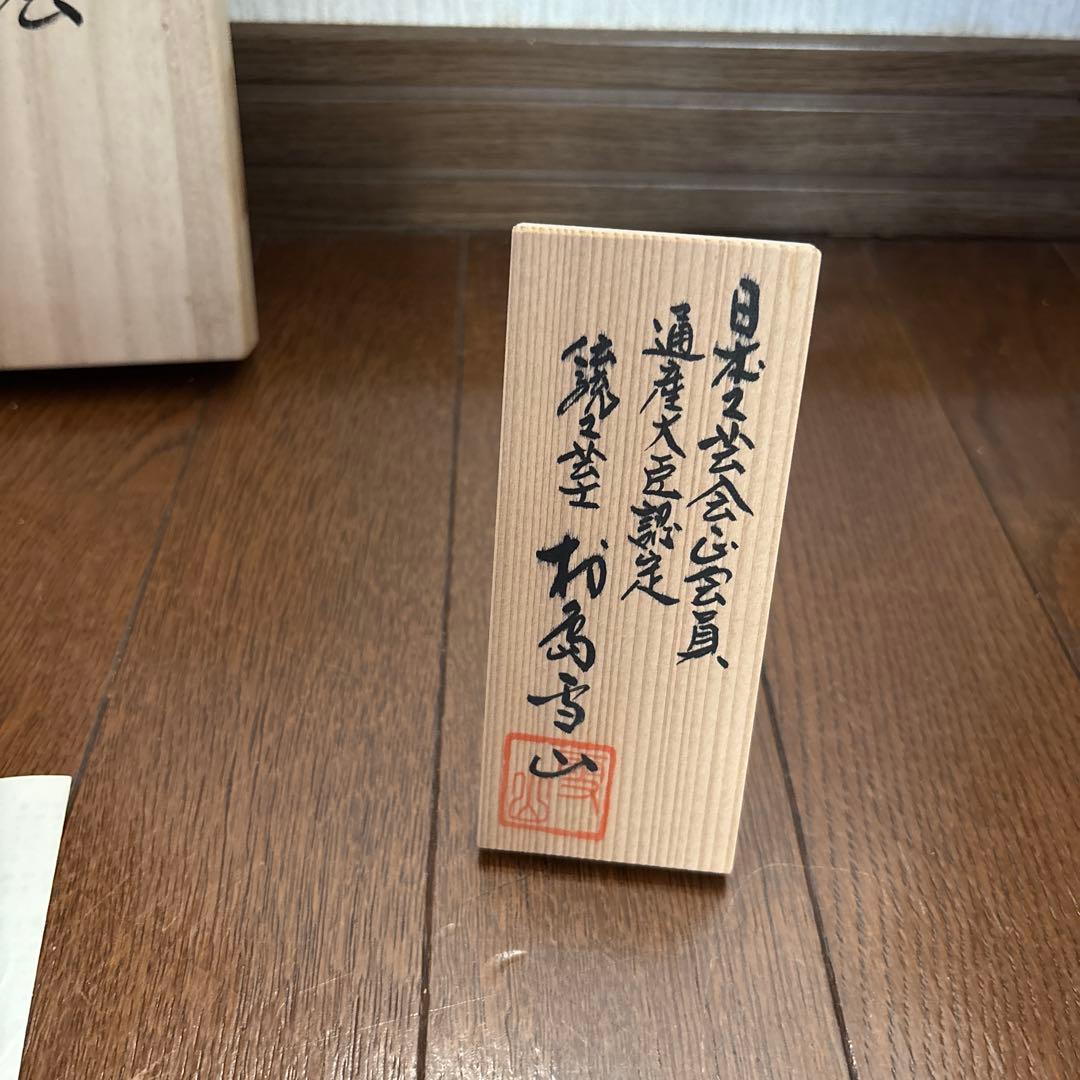 日本工芸会正会員
通産大臣認定
伝統工芸士 村島雪山
雪山